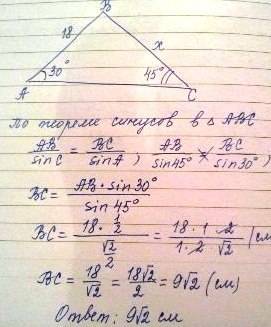 B
18
x
30°
45°
A
C
По теореме синусов в △ ABC
AB/sin C = BC/sin A ; AB/sin 45° = BC/sin 30°
BC = AB · sin 30°/sin 45°
BC = 18 · 1/2/√2/2 = 18 · 1 · 2/1 · 2 · √2 (см
BC = 18/√2 = 18√2/2 = 9√2 (см)
Ответ: 9√2 см